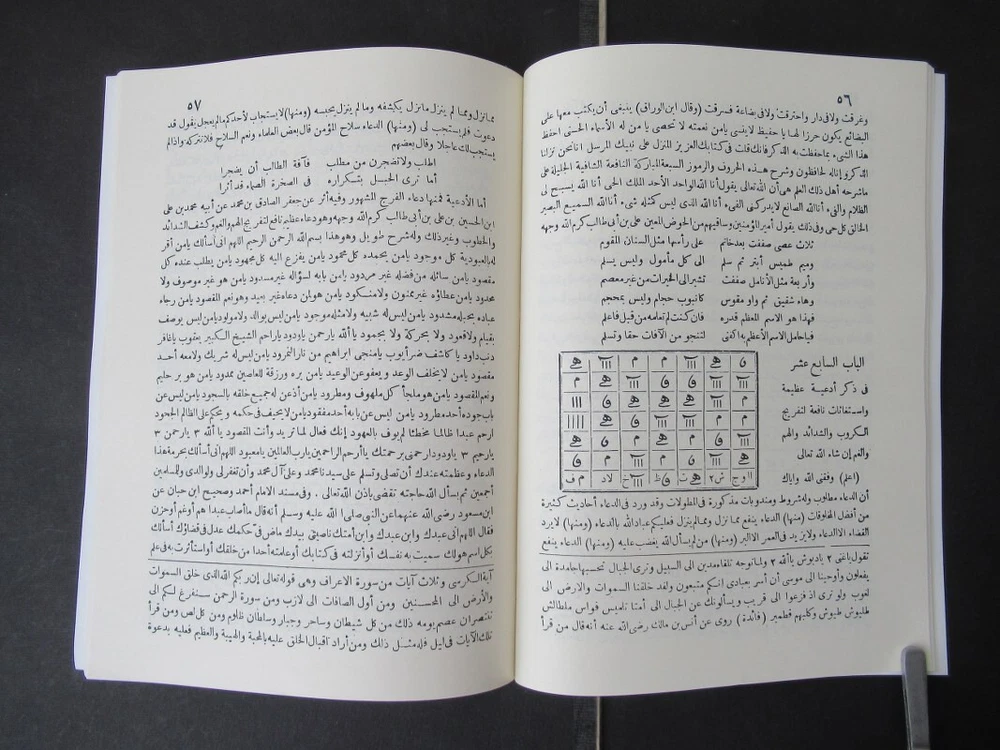 ٥٦
وغرقت ولا فى دار واحترقت ولا فى بضاعة فسرقت (وقال ابن الوراق) ينبغى أن يكتب معها على
البضائع يكون حرزا لها يا حفيظ لا ينسى يا من نعمته لا تحصى يا من له الأسماء الحسنى احفظ
هذا الشىء بما حفظت به الذكر فانك قلت فى كتابك العزيز المنزل على نبيك المرسل انا نحن نزلنا
الذكر وإنا له لحافظون وشرح هذه الحروف والرموز السبعة المباركة النافعة الشافية الجليلة على
ما شرحه أهل ذلك العلم هى أن الله تعالى يقول أنا الله الواحد الأحد الملك الحى أنا الله يسبح لى
الظلام والفىء أنا الله الصانع لا يدركنى الفىء أنا الله الذى ليس كمثله شىء أنا الله السميع البصير
الخالق كل حى وفى ذلك يقول أمير المؤمنين وساقيهم من الحوض المعين على بن أبى طالب كرم الله وجهه
ثلاث عصى صففت بعد خاتم على رأسها مثل السنان المقوم
وميم طميس أبتر ثم سلم الى كل مأمول وليس بسلم
وأربعة مثل الأنامل صففت تشير الى الخيرات من غير معصم
وهاء شقيق ثم واو مقوس كأنبوب حجام وليس بمحجم
فهذا هو الاسم المعظم قدره فان كنت لم تعلمه من قبل فاعلم
فيا حامل الاسم الأعظم به اكتفى لتنجو من الآفات حقا وتسلم
الباب السابع عشر
فى ذكر أدعية عظيمة
واستغاثات نافعة لتفريج
الكروب والشدائد والهم
والغم إن شاء الله تعالى
(اعلم) وفقنى الله واياك
أن الدعاء مطلوب وله شروط ومندوبات مذكورة فى المطولات وقد ورد فى الدعاء أحاديث كثيرة
من أفضل المخلوقات (منها) الدعاء ينفع مما نزل ومما لم ينزل فعليكم عباد الله بالدعاء (ومنها) لا يرد
القضاء الا الدعاء ولا يزيد فى العمر الا البر (ومنها) من لم يسأل الله يغضب عليه (ومنها) الدعاء ينفع
تقول باغنى ٢ ياالله ٢ ولما توجه تلقاء مدين الى السبيل وترى الجبال تحسبها جامدة الى
يفعلون وأوحينا الى موسى أن أسر بعبادى انكم متبعون ولقد خلقنا السموات والأرض الى
لغوب ولو ترى اذ فزعوا الى قريب ويسألونك عن الجبال الى أمتا
طليوش طيوش وكلبهم قطمير (فائدة) روى عن أنس بن مالك رضى الله عنه أنه قال من قرأ
٥٧
مما نزل ومما لم ينزل ما نزل يكشفه وما لم ينزل يحبسه (ومنها) لا يستجاب لأحدكم مالم يعجل يقول قد
دعوت فلم يستجب لى (ومنها) الدعاء سلاح المؤمن قال بعض العلماء ونعم السلاح فلا تتركه واذا لم
يستجب لك عاجلا وقال بعضهم
اطلب ولا تضجرن من مطلب فآفة الطالب أن يضجرا
أما ترى الحبل بتكراره فى الصخرة الصماء قد أثرا
أما الأدعية فمنها دعاء الفرج المشهور وفيه أثر عن جعفر الصادق بن محمد عن أبيه محمد بن على
ابن الحسين بن على بن أبى طالب كرم الله وجهه وهو دعاء عظيم نافع لتفريج الهم والغم وكشف الشدائد
والخطوب وغير ذلك وله شرح طويل وهو هذا بسم الله الرحمن الرحيم اللهم انى أسألك يا من أقر
له بالعبودية كل موجود يا من يحمده كل محمود يا من يفزع اليه كل مجهود يا من يطلب عنده كل
مقصود يا من سائله من فضله غير مردود يا من بابه لسؤاله غير مسدود يا من هو غير موصوف ولا
محدود يا من عطاؤه غير ممنون ولا منكود يا من هو لمن دعاه غير بعيد وهو نعم المقصود يا من رجاء
عباده بحبله مشدود يا من ليس له شبيه ولا مثله موجود يا من ليس بوالد ولا مولود يا من ليس يوصف
بقيام ولا قعود ولا بحركة ولا بجمود يا الله يا رحمن يا ودود يا راحم الشيخ الكبير يعقوب يا غافر
ذنب داود يا كاشف ضر أيوب يا منجى ابراهيم من نار النمرود يا من ليس له شريك ولا معه أحد
مقصود يا من لا يخلف الوعد ويعفو عن الوعيد يا من بره ورزقه للعاصين ممدود يا من هو بر حليم
ونعم المقصود يا من هو ملجأ كل ملهوف ومطرود يا من أذعن له جميع خلقه بالسجود يا من ليس عن
باب جوده أحد مطرود يا من ليس عن بابه أحد مفقود يا من لا يحيف فى حكمه و يحكم على الظالم الجحود
ارحم عبدا ظالما مخطئا لم يوف بالعهود إنك فعال لما تريد وأنت المقصود يا الله ٣ يا رحمن ٣
يا رحيم ٣ يا ودود ارحمنى برحمتك يا أرحم الراحمين يا رب العالمين يا معبود اللهم انى أسألك بحرمة هذا
الدعاء وعظمته عندك أن تصلى وتسلم على سيدنا محمد وعلى آل محمد وأن تغفر لى ولوالدى وللمسلمين
أجمعين ثم يسأل الله حاجته تقضى باذن الله تعالى. وفى مسند الامام أحمد وصحيح ابن حبان عن
ابن مسعود رضى الله عنهما عن النبى صلى الله عليه وسلم أنه قال ما أصاب عبدا هم أو غم أو حزن
فقال اللهم انى عبدك وابن عبدك وابن أمتك ناصيتى بيدك ماض فى حكمك عدل فى قضاؤك أسألك
بكل اسم هو لك سميت به نفسك أو أنزلته فى كتابك أو علمته أحدا من خلقك أو استأثرت به فى علم
آية الكرسى وثلاث آيات من سورة الاعراف وهى قوله تعالى إن ربكم الله الذى خلق السموات
والأرض الى المحسنين ومن أول الصافات الى لازب ومن سورة الرحمن سنفرغ لكم الى
تنتصران عصم يومه ذلك من كل شيطان وساحر وجبار وسلطان ظلوم ومن كل لص ومن قرأ
تلك الآيات فى ليل فله مثل ذلك ومن أراد اقبال الخلق عليه بالمحبة والهيبة والعظم فعليه بدعوة